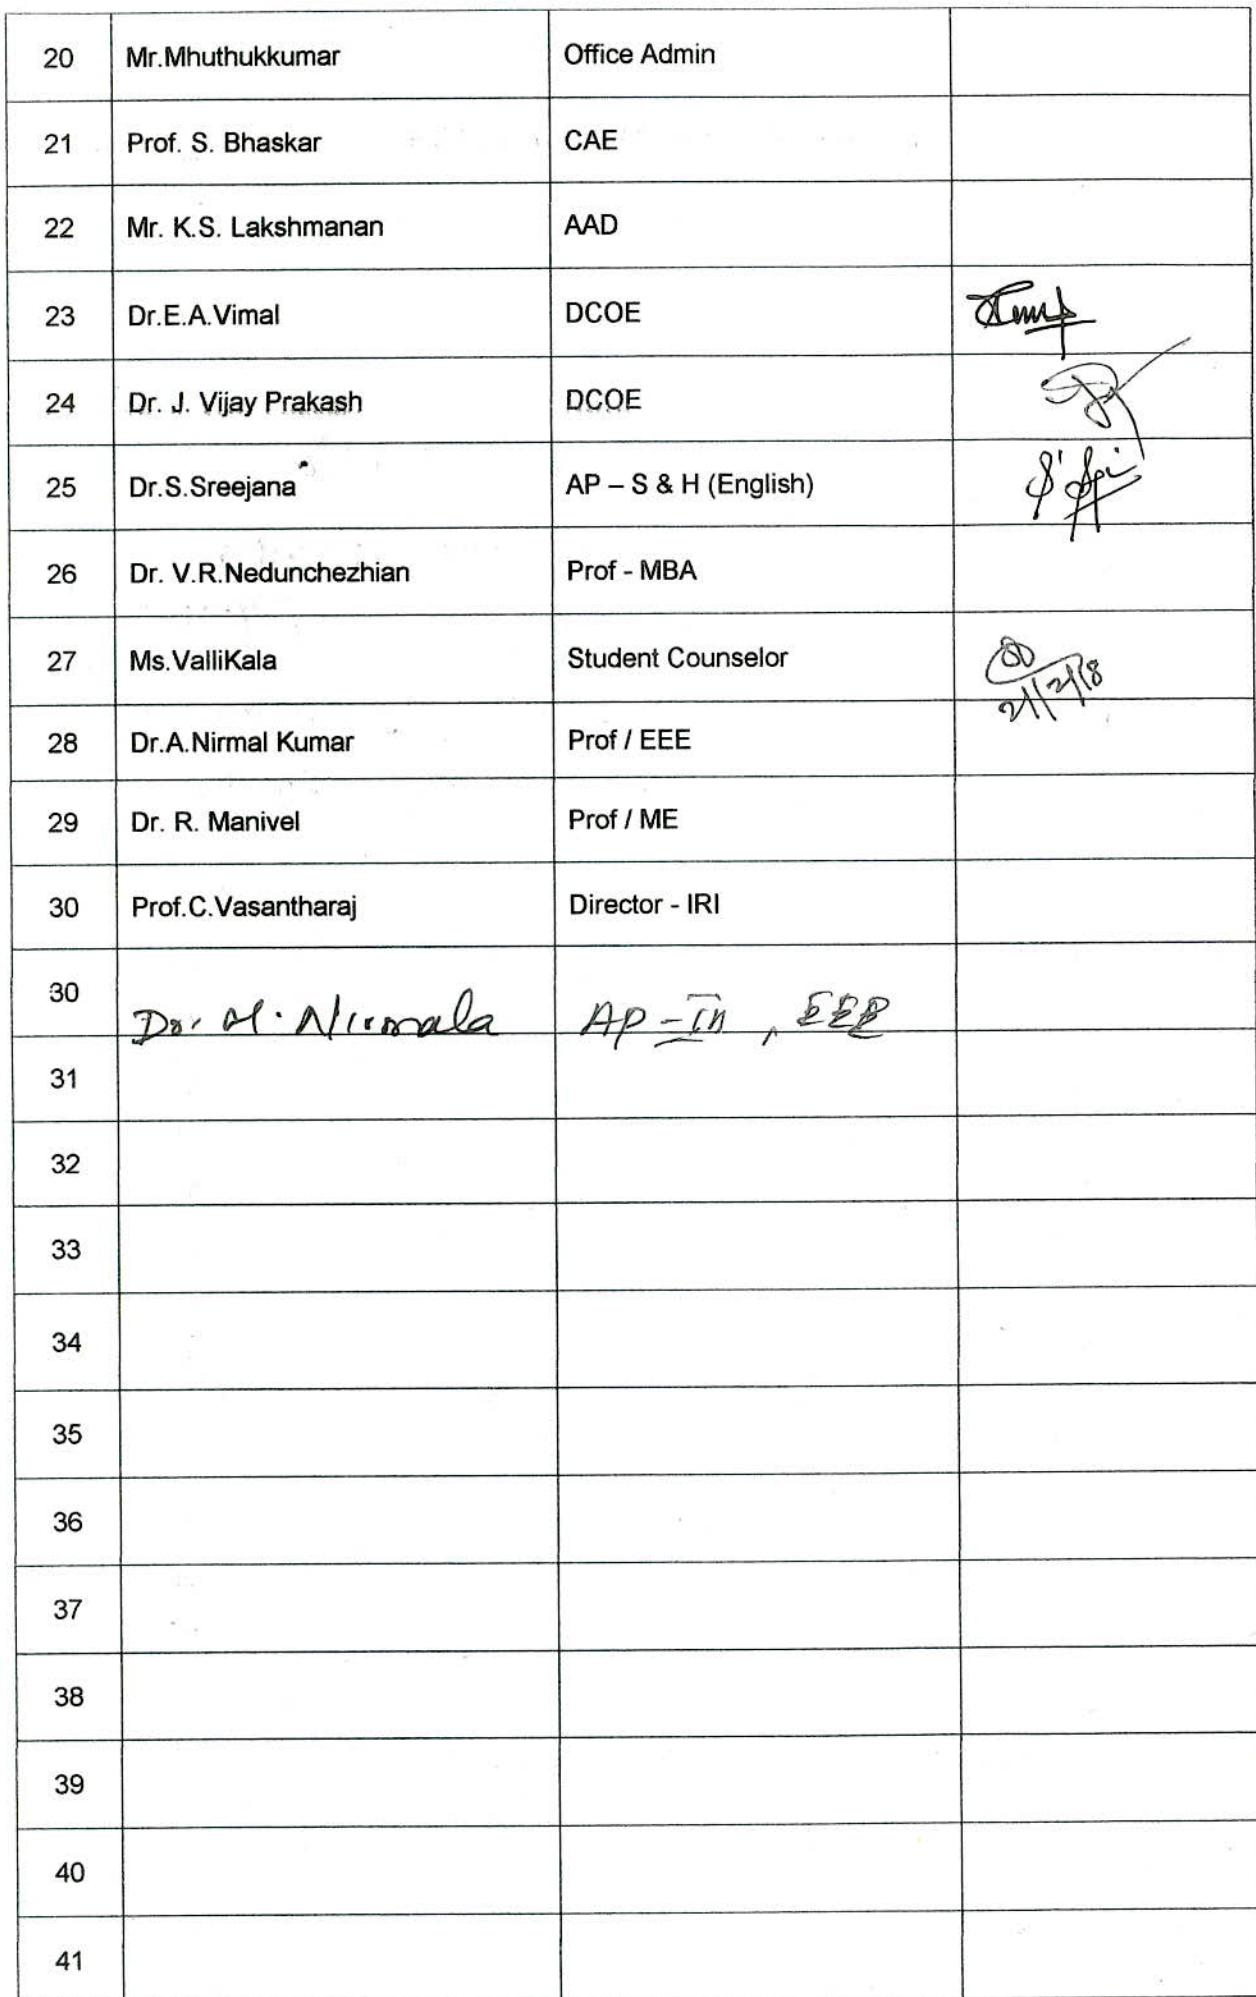 20 Mr.Mhuthukkumar Office Admin
21 Prof. S. Bhaskar CAE
22 Mr. K.S. Lakshmanan AAD
23 Dr.E.A.Vimal DCOE
24 Dr. J. Vijay Prakash DCOE
25 Dr.S.Sreejana AP – S & H (English)
26 Dr. V.R.Nedunchezhian Prof - MBA
27 Ms.ValliKala Student Counselor 21/2/18
28 Dr.A.Nirmal Kumar Prof / EEE
29 Dr. R. Manivel Prof / ME
30 Prof.C.Vasantharaj Director - IRI
30 Dr. M. Nirmala AP - III , EEE
31
32
33
34
35
36
37
38
39
40
41